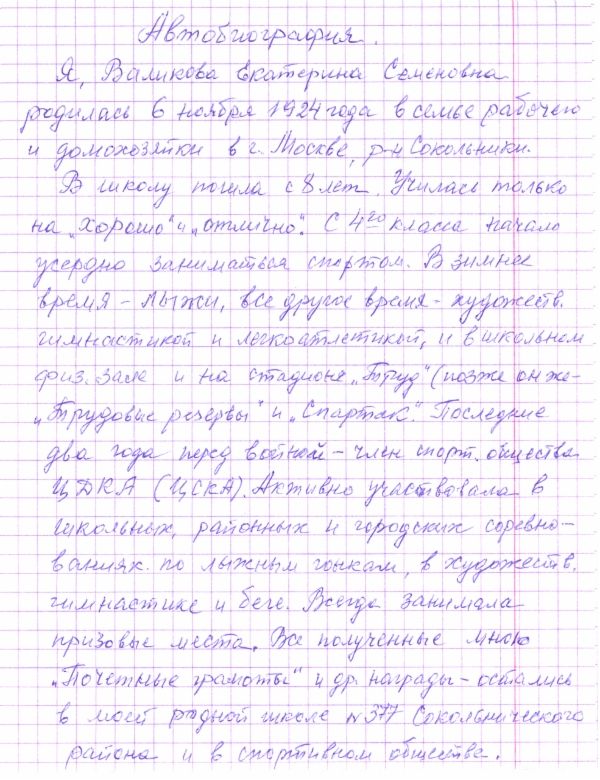 Автобиография.
Я, Валикова Екатерина Семёновна
родилась 6 ноября 1924 года в семье рабочего
и домохозяйки в г. Москве, р-н Сокольники.
В школу пошла с 8 лет. Училась только
на „хорошо" и „отлично". С 4го класса начала
усердно заниматься спортом. В зимнее
время – лыжи, все другое время – художеств.
гимнастикой и легкоатлетикой, и в школьном
физ. зале и на стадионе „Труд" (позже он же –
„Трудовые резервы" и „Спартак". Последние
два года перед войной – член спорт. общества
ЦДКА (ЦСКА). Активно участвовала в
школьных, районных и городских соревно-
ваниях по лыжным гонкам, в художеств.
гимнастике и беге. Всегда занимала
призовые места. Все полученные мною
„Почетные грамоты" и др. награды – остались
в моей родной школе № 377 Сокольнического
района и в спортивном обществе.